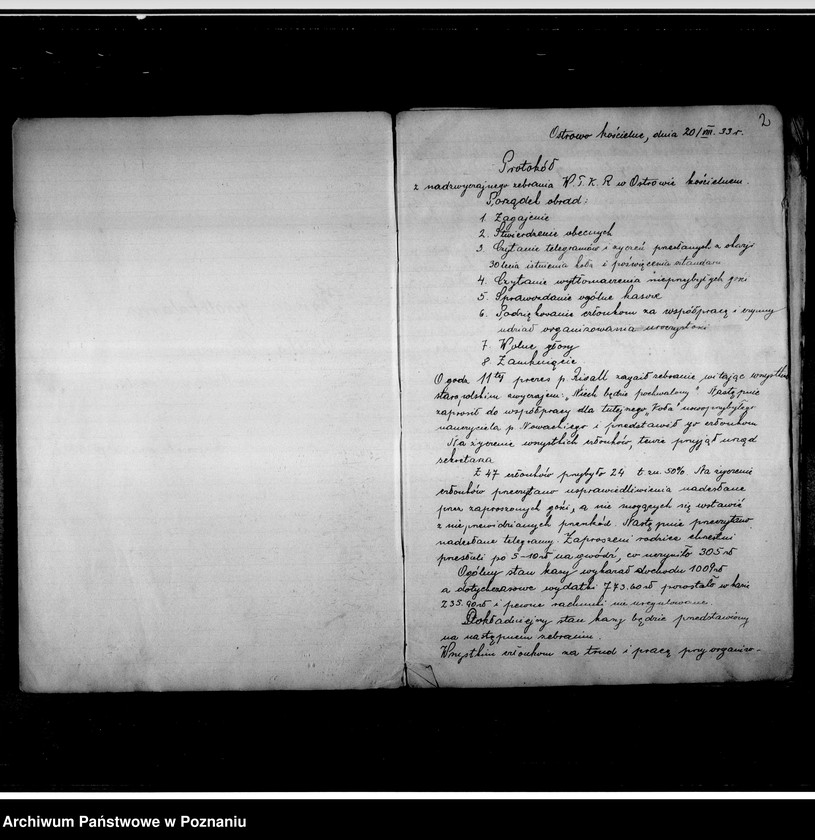 2
Ostrowo kościelne, dnia 20/VIII. 33 r.
Protokół
z nadzwyczajnego zebrania W. T. K. R w Ostrowie kościelnem.
Porządek obrad:
1. Zagajenie
2. Stwierdzenie obecnych
3. Czytanie telegramów i życzeń przesłanych z okazji
30 lecia istnienia koła i poświęcenia sztandaru
4. Czytanie wytłomaczenia nieprzybyłych gości
5. Sprawozdanie ogólne kasowe
6. Podziękowanie członkom za współpracę i czynny
udział organizowania uroczystości
7. Wolne głosy
8. Zamknięcie.
O godz. 11tej prezes p. zagaił zebranie witając wszystkich
staropolskim zwyczajem: „Niech będzie pochwalony" Następnie
zaprosił do współpracy dla tutejszego „Koła" nowoprzybyłego
nauczyciela p. Nowackiego i przedstawił go członkom
Na życzenie wszystkich członków, tenże przyjął urząd
sekretarza
Z 47 członków przybyło 24 t. zn. 50%. Na życzenie
członków przeczytano usprawiedliwienia nadesłane
przez zaproszonych gości, a nie mogących się wstawić
z nieprzewidzianych przeszkód. Następnie przeczytano
nadesłane telegramy. Zaproszeni rodzice chrzestni
przesłali po 5-10 zł na gwóźdź, co uczyniło 305 zł
Ogólny stan kasy wykazał dochodu 1009 zł
a dotychczasowe wydatki 773.60 zł pozostało w kasie
235.40 zł i pewne rachunki nie uregulowane.
Dokładniejszy stan kasy będzie przedstawiony
na następnem zebraniu.
Wszystkim członkom za trud i pracę przy organizo-
Archiwum Państwowe w Poznaniu